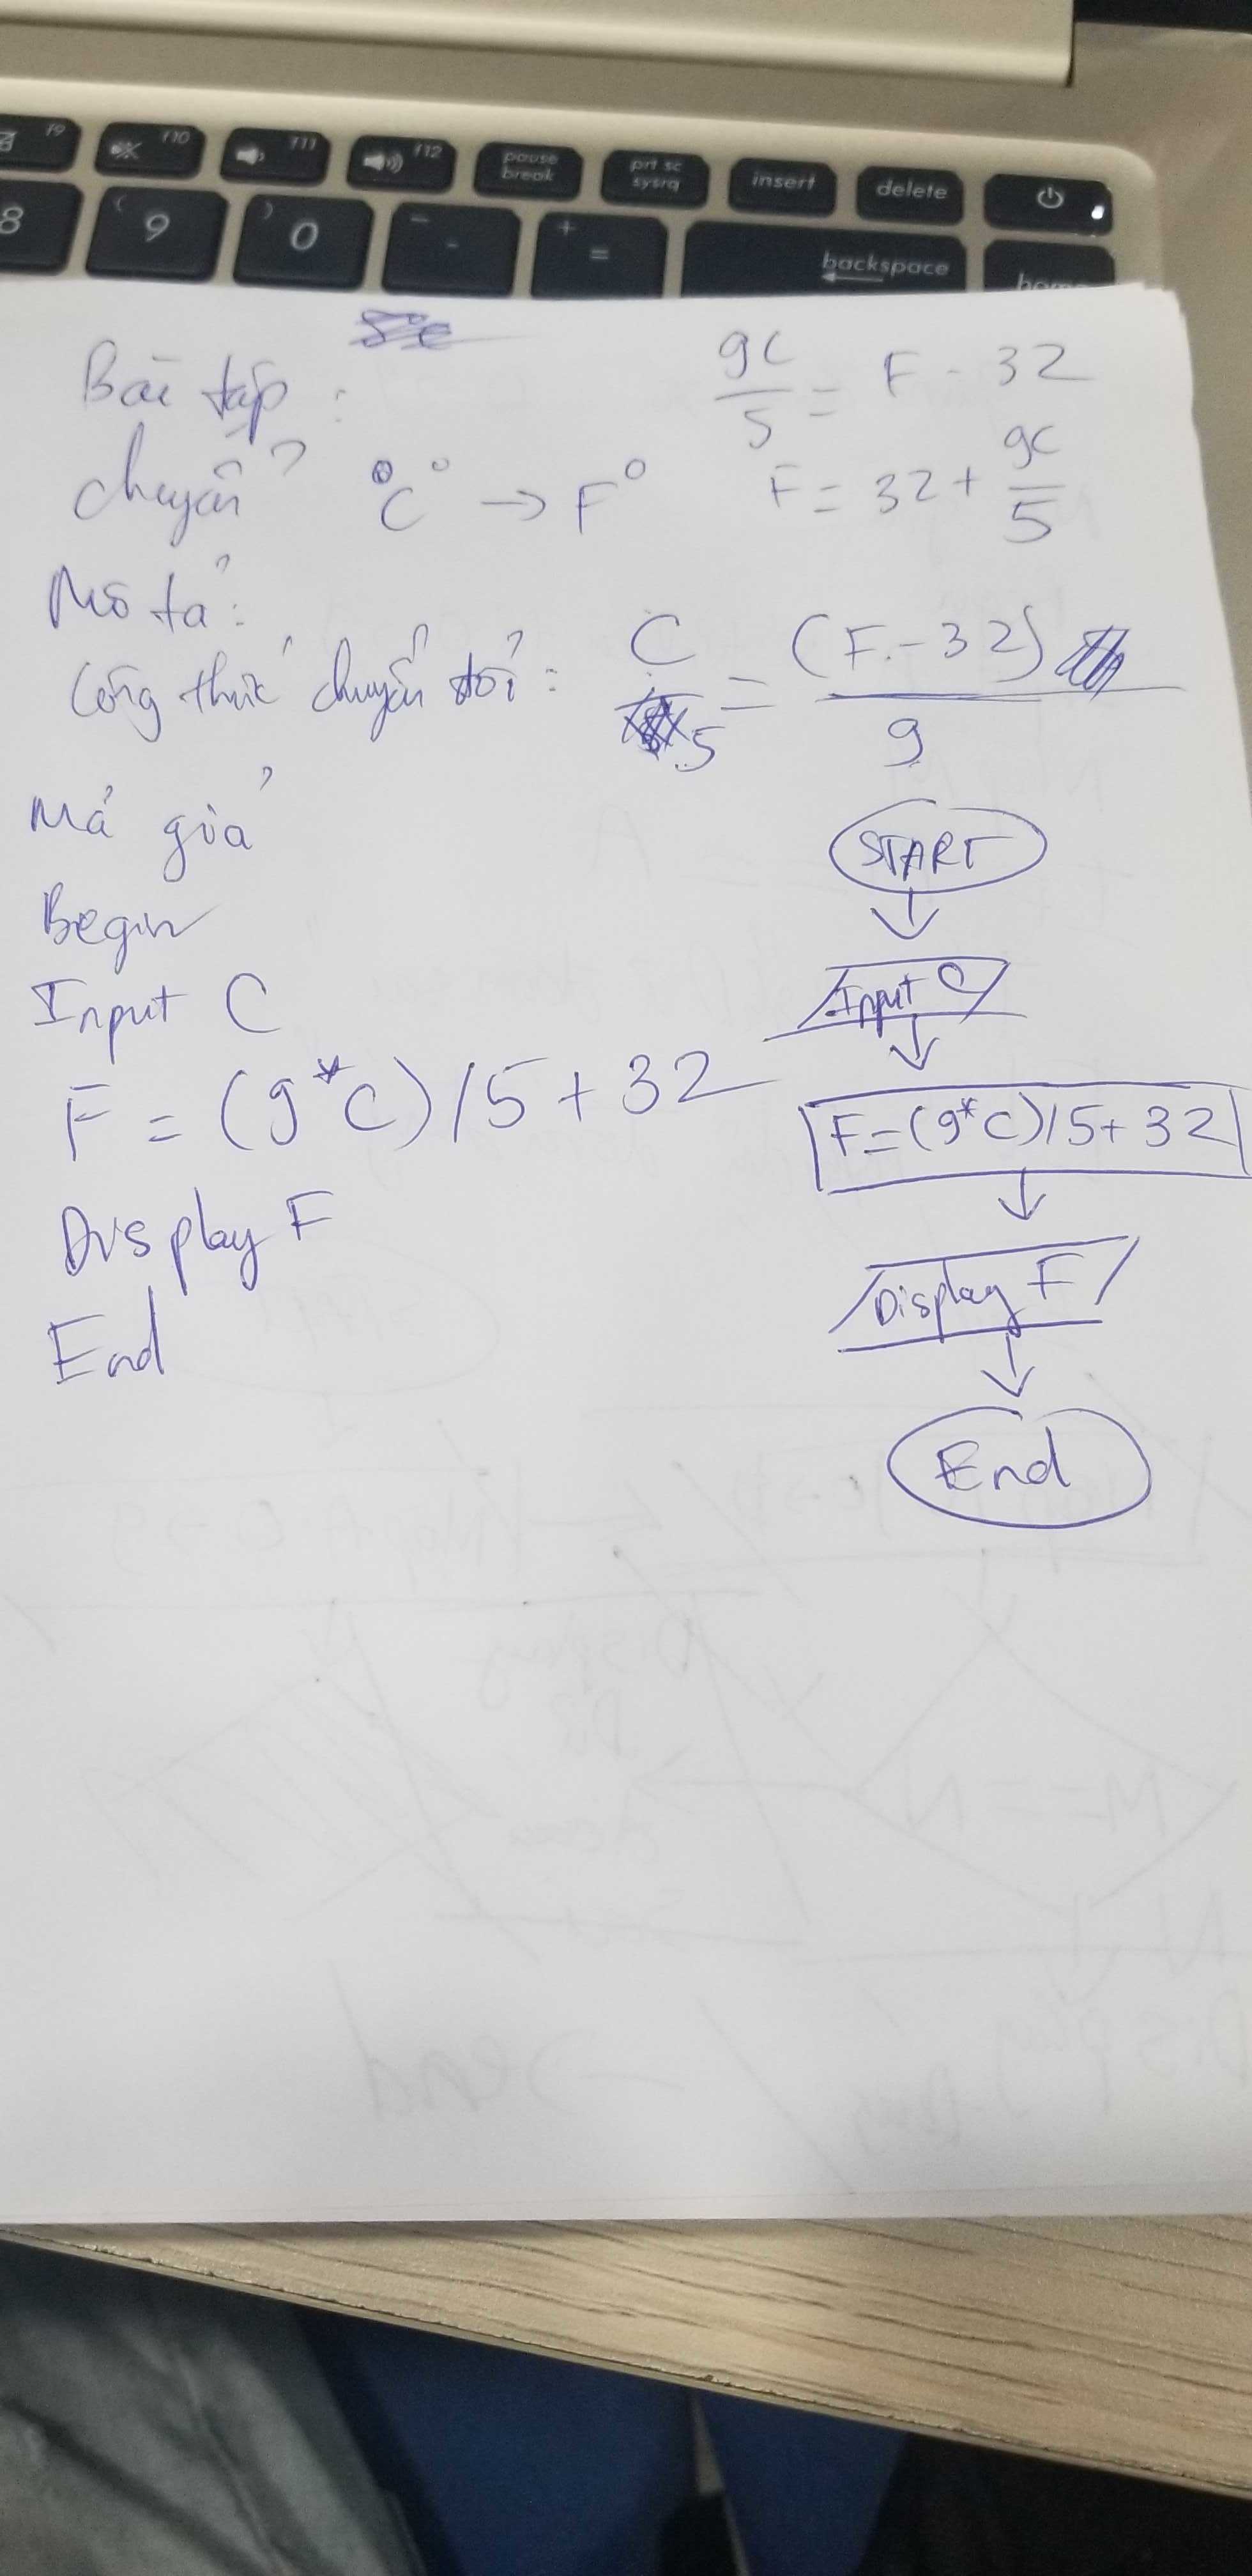 f9 f10 f11 f12 pause break prt sc sysrq insert delete
8 ( 9 ) 0 _ - + = backspace
Bài tập :
9C/5 = F - 32
chuyển °C° → F°
F = 32 + 9C/5
Mô tả :
Công thức chuyển đổi : C/5 = (F - 32)/9
Mả giả
Begin
Input C
F = (9*C)/5 + 32
Display F
End
START
Input C
F=(9*C)/5+32
Display F
End